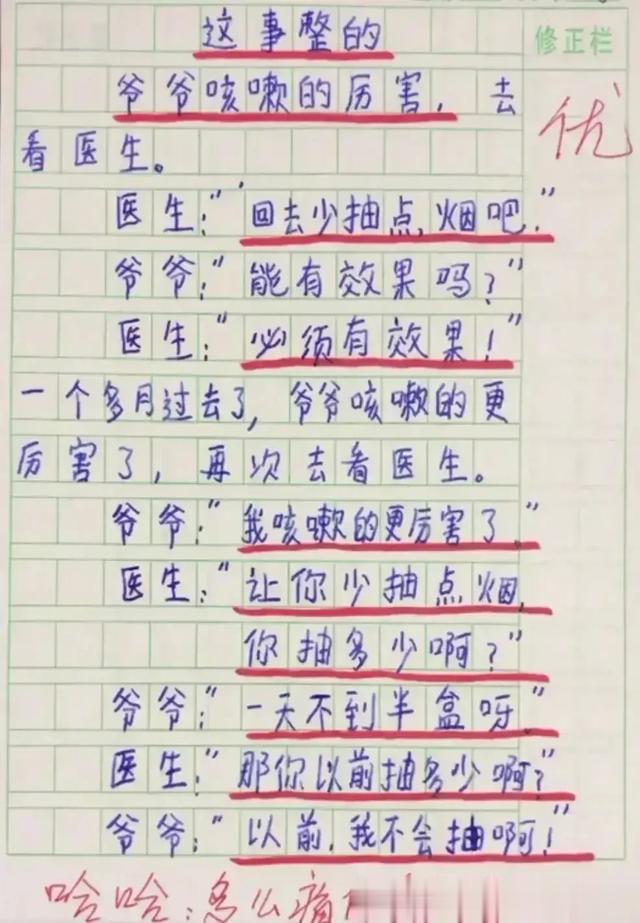 这事整的
修正栏
爷爷咳嗽的厉害，去
优
看医生。
医生：“回去少抽点烟吧.”
爷爷：“能有效果吗？”
医生：“必须有效果！”
一个多月过去了，爷爷咳嗽的更
厉害了，再次去看医生。
爷爷：“我咳嗽的更厉害了。”
医生：“让你少抽点烟，
你抽多少啊？”
爷爷：“一天不到半盒呀.”
医生：“那你以前抽多少啊？”
爷爷：“以前，我不会抽啊！”
哈哈：多么痛